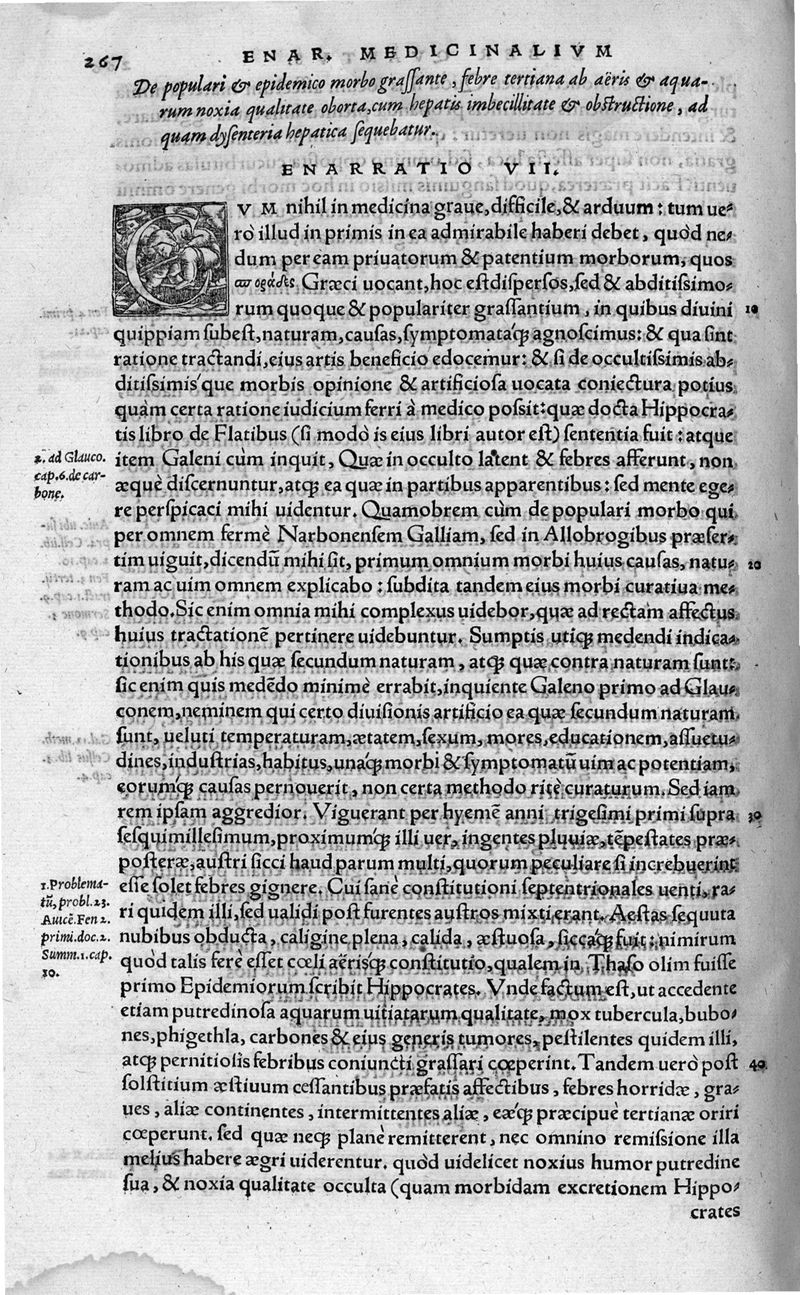 267 ENAR. MEDICINALIVM
De populari & epidemico morbo graſſante, febre tertiana ab aëris & aqua-
rum noxia qualitate oborta, cum hepatis imbecillitate & obſtructione, ad
quam dyſenteria hepatica ſequebatur.
ENARRATIO VII.
CVM nihil in medicina graue, difficile, & arduum: tum ue-
rò illud in primis in ea admirabile haberi debet, quòd ne-
dum per eam priuatorum & patentium morborum, quos
Græci uocant, hoc eſt diſperſos, ſed & abditiſsimo-
rum quoque & populariter graſſantium, in quibus diuini 10
quippiam ſubeſt, naturam, cauſas, ſymptomataq́; agnoſcimus: & qua ſint
ratione tractandi, eius artis beneficio edocemur: & ſi de occultiſsimis ab-
ditiſsimis que morbis opinione & artificioſa uocata coniectura potius
quàm certa ratione iudicium ferri à medico poſsit: quæ docta Hippocra-
tis libro de Flatibus (ſi modò is eius libri autor eſt) ſententia fuit: atque
2. ad Glauco.
cap. 6. de car-
bone.
item Galeni cùm inquit, Quæ in occulto latent & febres afferunt, non
æquè diſcernuntur, atq; ea quæ in partibus apparentibus: ſed mente ege-
re perſpicaci mihi uidentur. Quamobrem cùm de populari morbo qui
per omnem fermè Narbonenſem Galliam, ſed in Allobrogibus præſer-
tim uiguit, dicendū mihi ſit, primum omnium morbi huius cauſas, natu- 20
ram ac uim omnem explicabo: ſubdita tandem eius morbi curatiua me-
thodo. Sic enim omnia mihi complexus uidebor, quæ ad rectam affectus
huius tractationē pertinere uidebuntur. Sumptis utiq; medendi indica-
tionibus ab his quæ ſecundum naturam, atq; quæ contra naturam ſunt:
ſic enim quis medēdo minimè errabit, inquiente Galeno primo ad Glau
conem, neminem qui certo diuiſionis artificio ea quæ ſecundum naturam
ſunt, ueluti temperaturam, ætatem, ſexum, mores, educationem, aſſuetu-
dines, induſtrias, habitus, unaq́; morbi & ſymptomatū uim ac potentiam,
eorumq́; cauſas pernouerit, non certa methodo ritè curaturum. Sed iam
rem ipſam aggredior. Viguerant per hyemē anni trigeſimi primi ſupra 30
ſeſquimilleſimum, proximumq́; illi uer, ingentes pluuiæ, tēpeſtates præ-
poſteræ, auſtri ſicci haud parum multi, quorum peculiare ſi increbuerint
1. Problema-
tū, probl. 23.
Auicē. Fen 2.
primi. doc. 2.
Summ. 1. cap.
30.
eſſe ſolet febres gignere. Cui ſanè conſtitutioni ſeptentrionales uenti, ra-
ri quidem illi, ſed ualidi poſt furentes auſtros mixti erant. Aeſtas ſequuta
nubibus obducta, caligine plena, calida, æſtuoſa, ſiccaq́; fuit: nimirum
quòd talis ferè eſſet cœli aërisq́; conſtitutio, qualem in Thaſo olim fuiſſe
primo Epidemiorum ſcribit Hippocrates. Vnde factum eſt, ut accedente
etiam putredinoſa aquarum uitiatarum qualitate, mox tubercula, bubo-
nes, phigethla, carbones & eius generis tumores, peſtilentes quidem illi,
atq; pernitioſis febribus coniuncti graſſari cœperint. Tandem uerò poſt 40
ſolſtitium æſtiuum ceſſantibus præfatis affectibus, febres horridæ, gra-
ues, aliæ continentes, intermittentes aliæ, eæq́; præcipuè tertianæ oriri
cœperunt. ſed quæ neq; planè remitterent, nec omnino remiſsione illa
melius habere ægri uiderentur. quòd uidelicet noxius humor putredine
ſua, & noxia qualitate occulta (quam morbidam excretionem Hippo-
crates